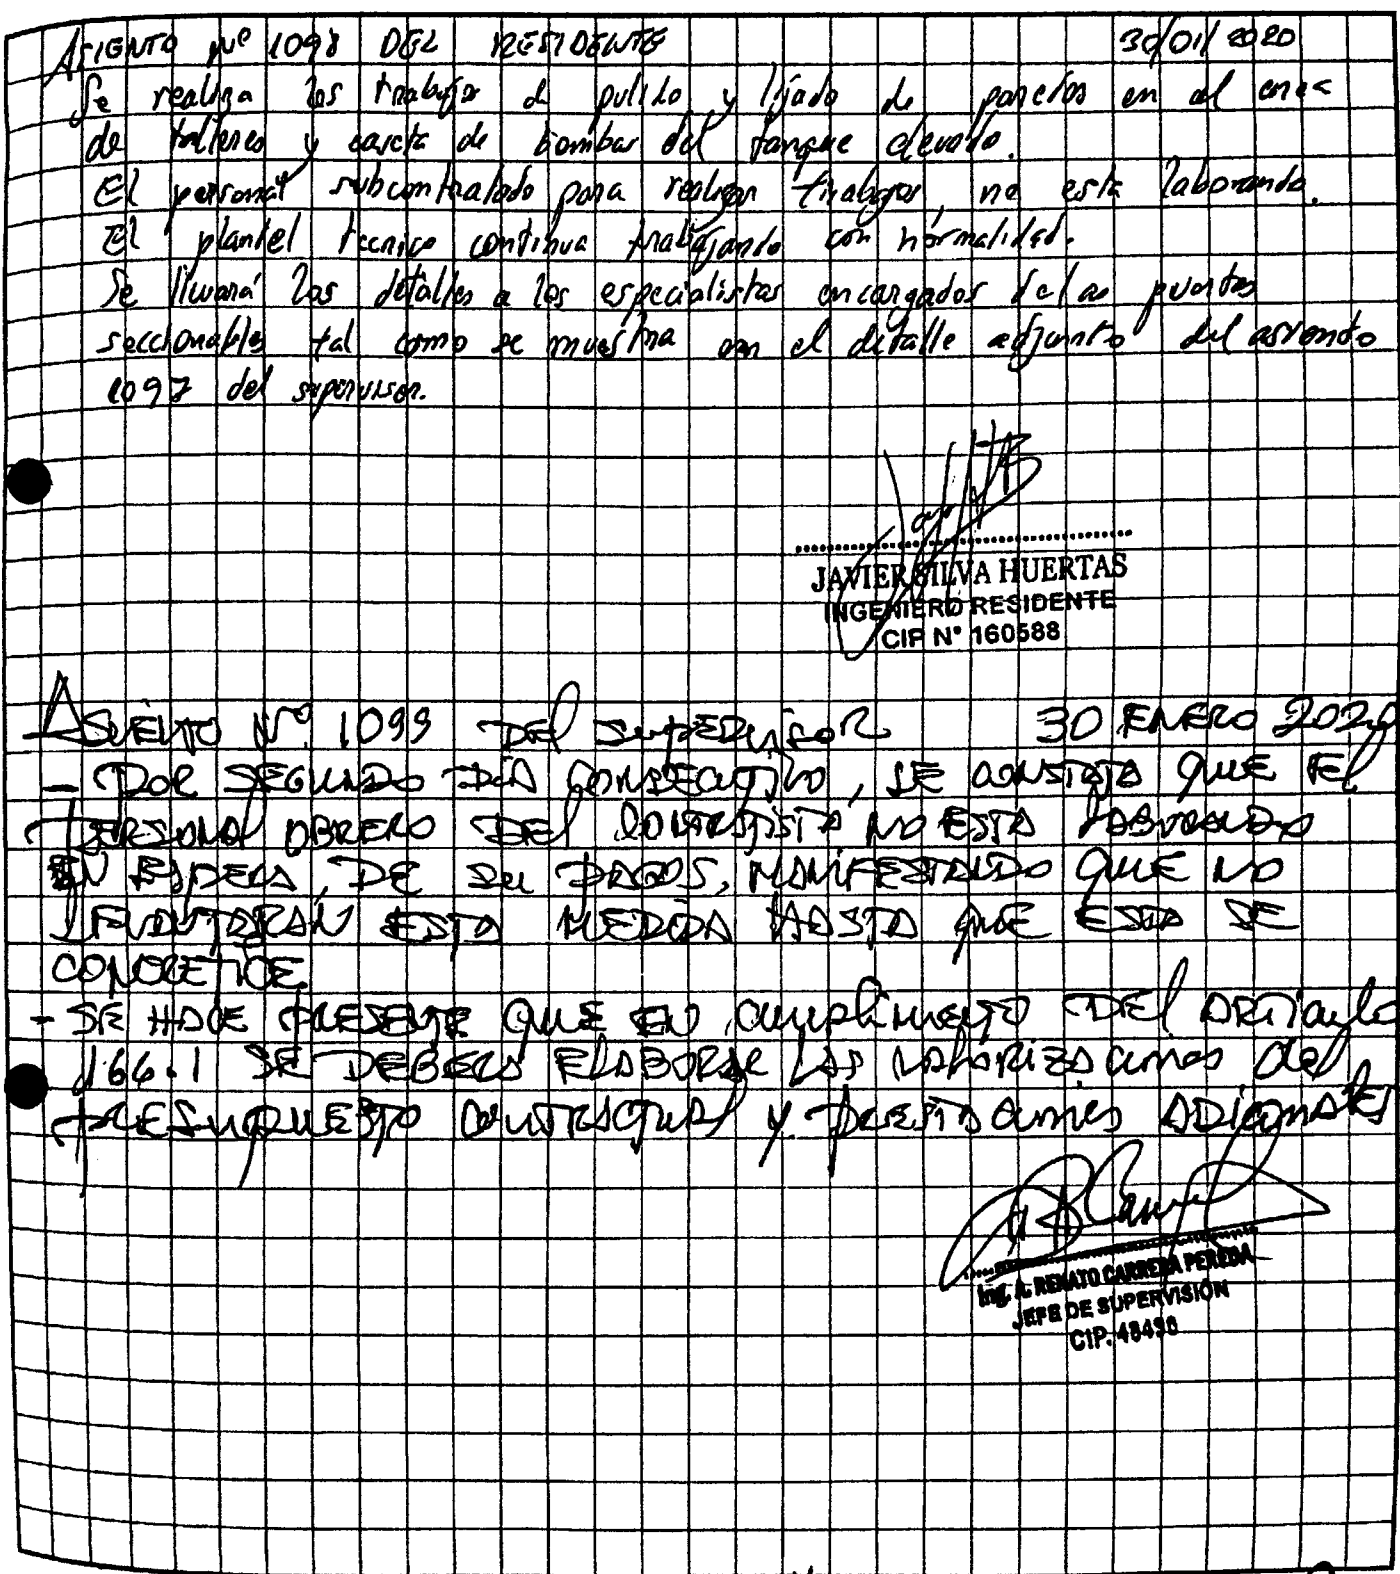 ASIENTO Nº 1098 DEL RESIDENTE 30/01/2020
Se realiza los trabajos de pulido y lijado de paredes en el area
de talleres y caseta de bombas del tanque elevado.
El personal subcontratado para realizar trabajos, no esta laborando.
El plantel tecnico continua trabajando con normalidad.
Se llevará los detalles a los especialistas encargados de las puertas
seccionables tal como se muestra en el detalle adjunto del asiento
1097 del supervisor.
JAVIER SILVA HUERTAS
INGENIERO RESIDENTE
CIP N° 160588
ASIENTO Nº 1099 DEL SUPERVISOR 30 ENERO 2020
- POR SEGUNDO DIA CONSECUTIVO, SE CONSTATA QUE EL
PERSONAL OBRERO DEL CONTRATISTA NO ESTA LABORANDO
EN ESPERA DE SU PAGOS, MANIFESTANDO QUE NO
LEVANTARAN ESTA MEDIDA HASTA QUE ESTA SE
CONCRETICE.
- SE HACE PRESENTE QUE EN cumplimiento DEL ARTiculo
166.1 SE DEBERA ELABORAR LAS VALORIZAciones del
PRESUPUESTO CONTRACTUAL y PRESTAciones ADicionALES
Ing. A. RENATO CARRERA PEREDA
JEFE DE SUPERVISIÓN
CIP.